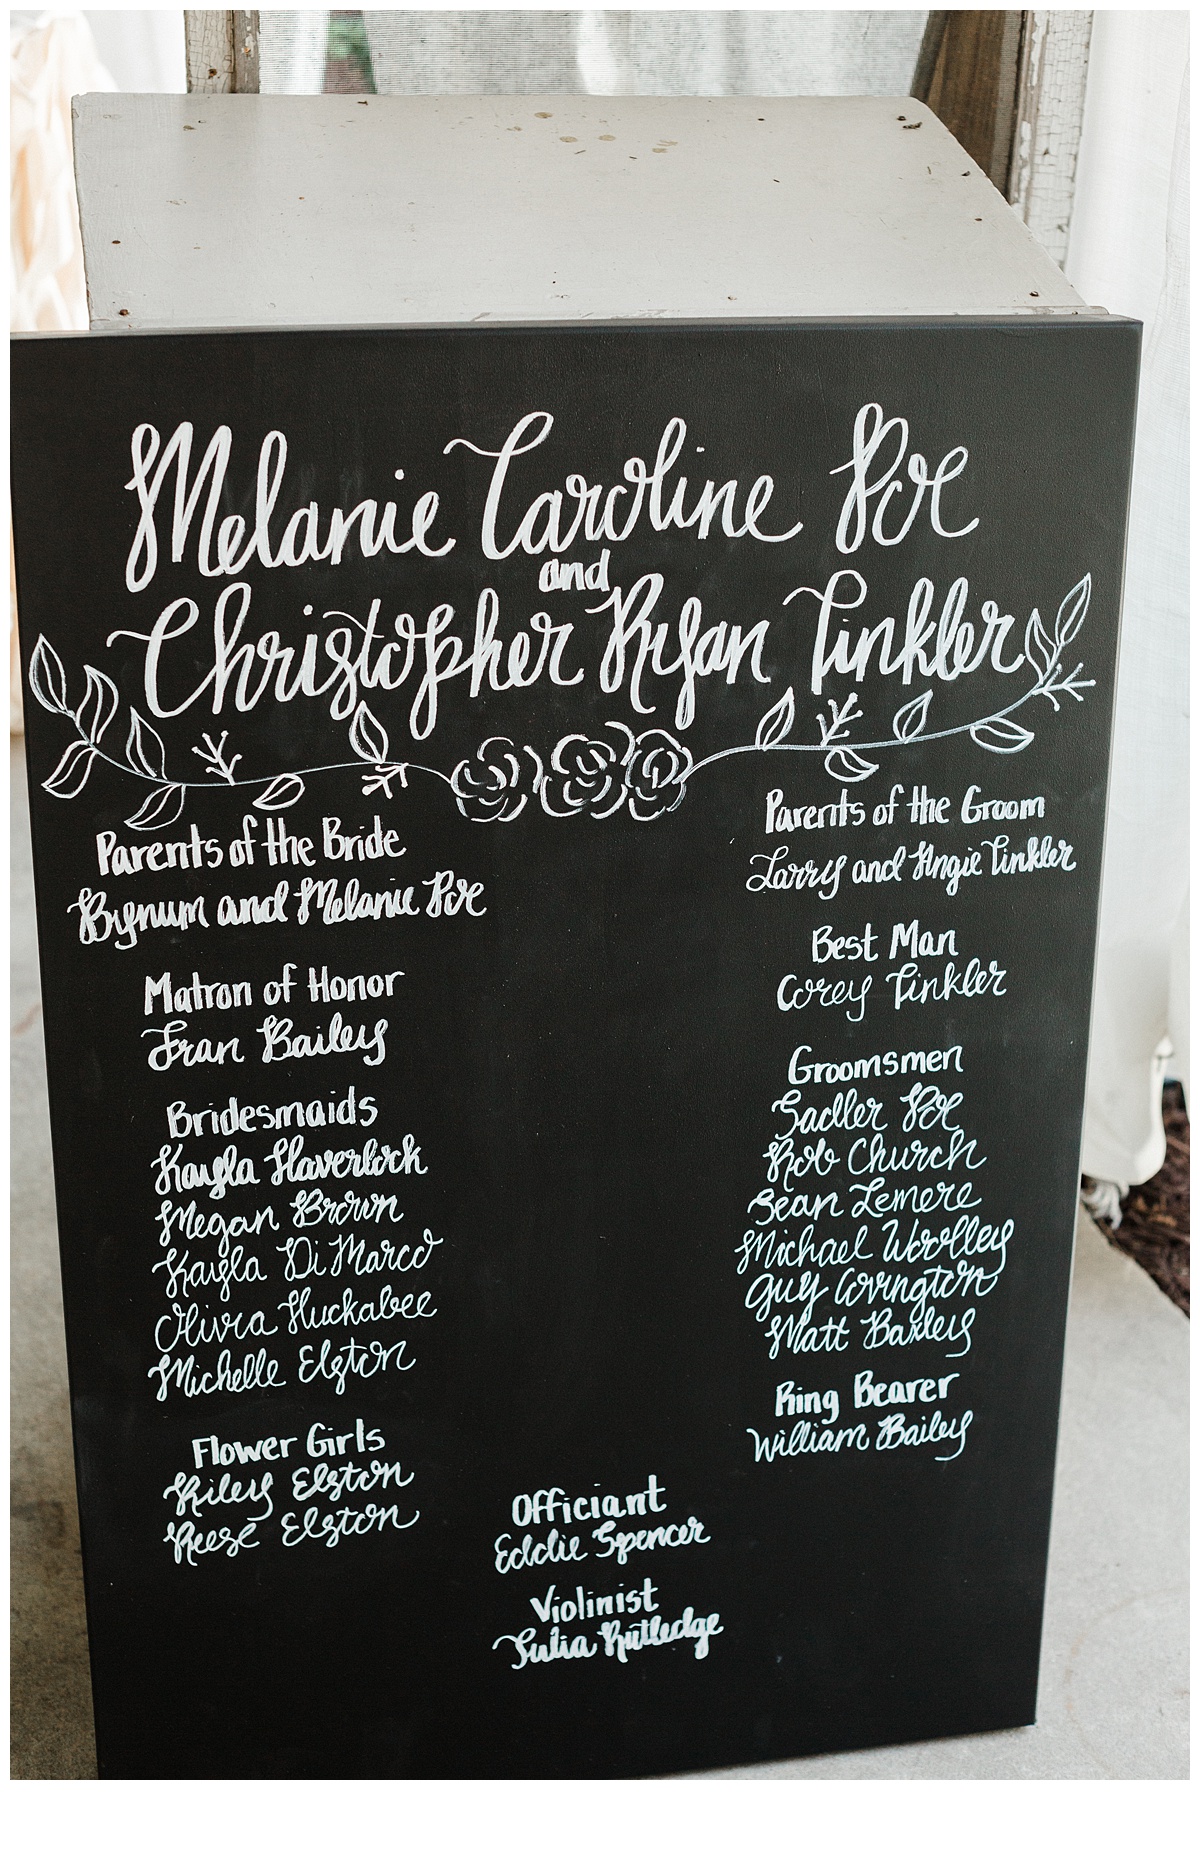 Melanie Caroline Poe
and
Christopher Ryan Tinkler
Parents of the Bride
Bynum and Melanie Poe
Matron of Honor
Fran Bailey
Bridesmaids
Kayla Haverlock
Megan Brown
Kayla Di Marco
Olivia Huckabee
Michelle Elston
Flower Girls
Riley Elston
Reese Elston
Parents of the Groom
Larry and Angie Tinkler
Best Man
Corey Tinkler
Groomsmen
Sadler Poe
Rob Church
Sean Lemere
Michael Woolley
Guy Covington
Matt Baxley
Ring Bearer
William Bailey
Officiant
Eddie Spencer
Violinist
Julia Rutledge